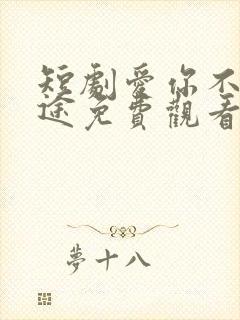 短劇愛你不
途免費觀看
夢十八